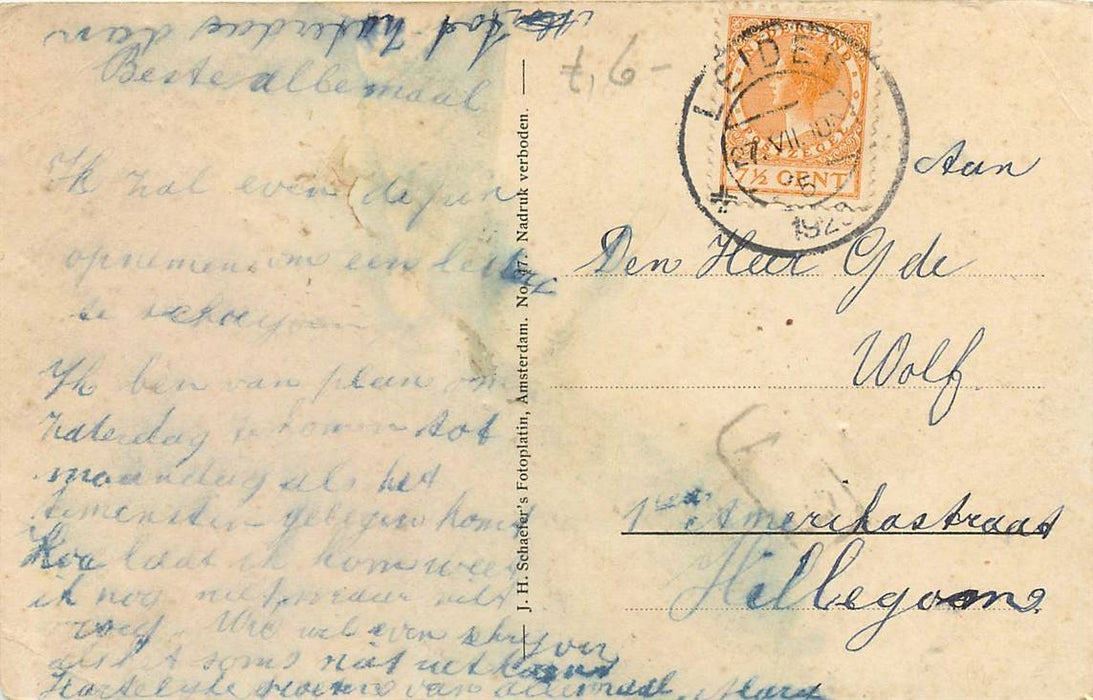 tot Zaterdag dan
Beste allemaal
Ik zal even de pen
opnemen om een letter
te schrijven
Ik ben van plan om
Zaterdag te komen tot
maandag als het
tenminsten gelegen komt
Hoe laat ik kom weet
ik nog niet maar niet
vroeg. Wie wil even schrijven
als het soms niet uitkomt
Hartelijke groeten van allemaal,
J. H. Schaefer's Fotoplatin, Amsterdam. No. 17. Nadruk verboden.
7,9 -
NEDERLAND
POSTZEGEL
7½ CENT
LEIDEN
1928
Aan
Den Heer G de
Wolf.
1ste Amerikastraat
Hillegom.